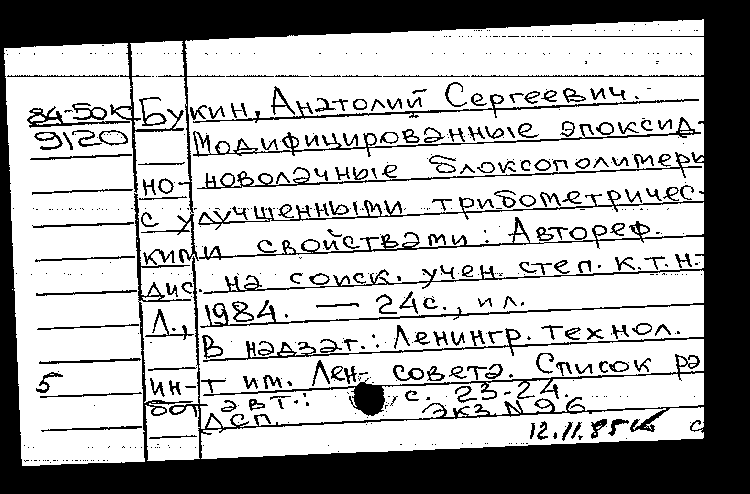 84-50к Букин, Анатолий Сергеевич.-
9120 Модифицированные эпоксид-
но-новолачные блоксополимеры
с улучшенными трибометричес-
кими свойствами: Автореф.
дис. на соиск. учен. степ. к.т.н.-
Л., 1984. — 24с., ил.
В надзаг.: Ленингр. технол.
5 ин-т им. Лен- совета. Список ра
бот авт.: с. 23-24.
ДСП. Экз. N 96.
12.11.85